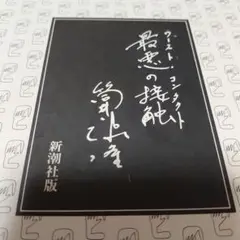 ワースト・コンタクト
最悪の接触
筒井康隆
新潮社版